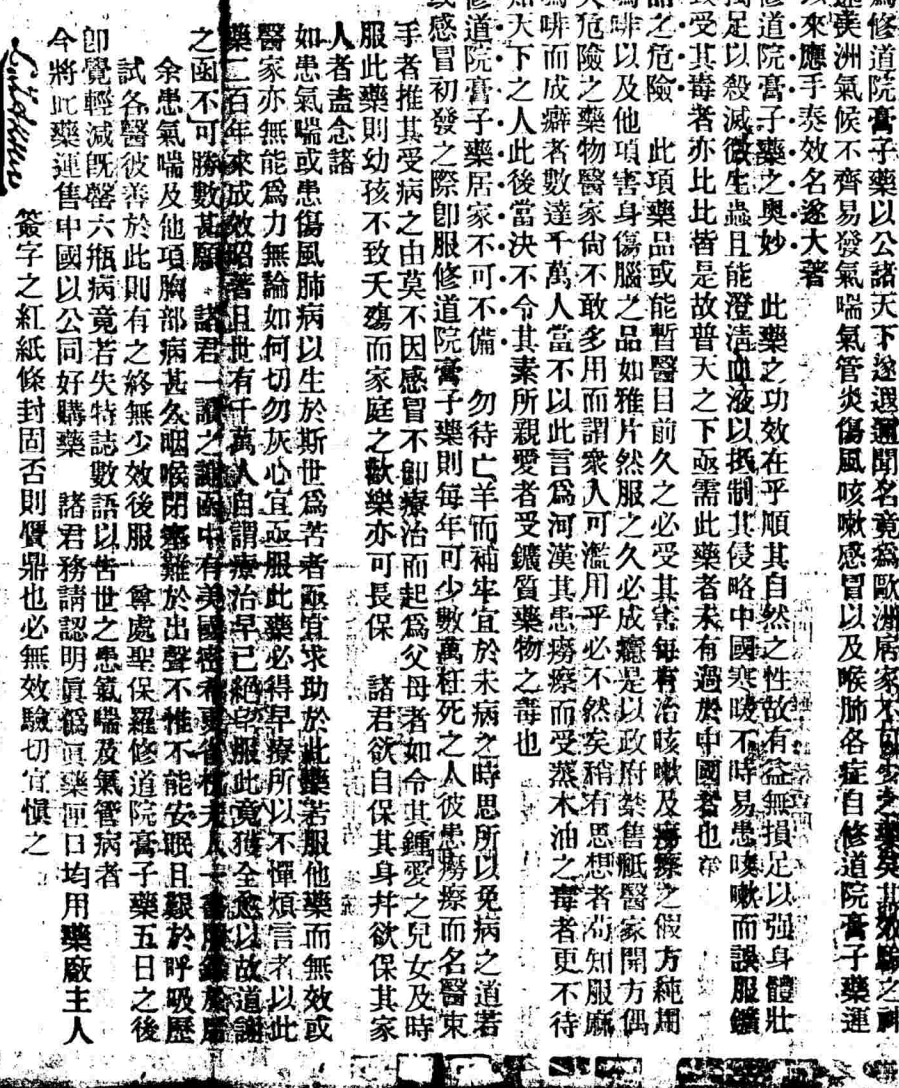 爲修道院膏子藥以公諸天下遂遐邇聞名竟爲歐洲居家不可少之藥矣其效驗之神
速美洲氣候不齊易發氣喘氣管炎傷風咳嗽感冒以及喉肺各症自修道院膏子藥運
以來應手奏效名遂大著
修道院膏子藥之奧妙　此藥之功效在乎順其自然之性故有益無損足以强身體壯
足以殺滅微生蟲且能澄清血液以抵制其侵略中國寒暖不時易患咳嗽而誤服鑛
受其毒者亦比比皆是故普天之下亟需此藥者未有過於中國者也
品之危險　此項藥品或能暫醫目前久之必受其害每有治咳嗽及癆瘵之假方純用
啡以及他項害身傷腦之品如雅片然服之久必成癮是以政府禁售舐醫家開方偶
大危險之藥物醫家尙不敢多用而謂衆人可濫用乎必不然矣稍有思想者苟知服麻
啡而成癖者數達千萬人當不以此言爲河漢其患癆瘵而受蒸木油之毒者更不待
天下之人此後當決不令其素所親愛者受鑛質藥物之毒也
修道院膏子藥居家不可不備　勿待亡羊而補牢宜於未病之時思所以免病之道若
感冒初發之際卽服修道院膏子藥則每年可少數萬枉死之人彼患癆瘵而名醫束
手者推其受病之由莫不因感冒不卽療治而起爲父母者如令其鍾愛之兒女及時
服此藥則幼孩不致夭殤而家庭之歡樂亦可長保　諸君欲自保其身幷欲保其家
人者盍念諸
如患氣喘或患傷風肺病以生於斯世爲苦者亟宜求助於此藥若服他藥而無效或
醫家亦無能爲力無論如何切勿灰心宜亟服此藥必得早療所以不憚煩言者以此
藥二百年來成效昭著且世有千萬人自謂療治早已絕望服此竟獲全愈以故道謝
之函不可勝數甚願　諸君一讀之謝函中有美國
余患氣喘及他項胸部病甚久咽喉閉塞難於出聲不惟不能安眠且艱於呼吸歷
試各醫彼善於此則有之終無少效後服　尊處聖保羅修道院膏子藥五日之後
卽覺輕減旣罄六瓶病竟若失特誌數語以告世之患氣喘及氣管病者
今將此藥運售中國以公同好購藥　諸君務請認明眞僞眞藥匣口均用藥廠主人
簽字之紅紙條封固否則贋鼎也必無效驗切宜愼之